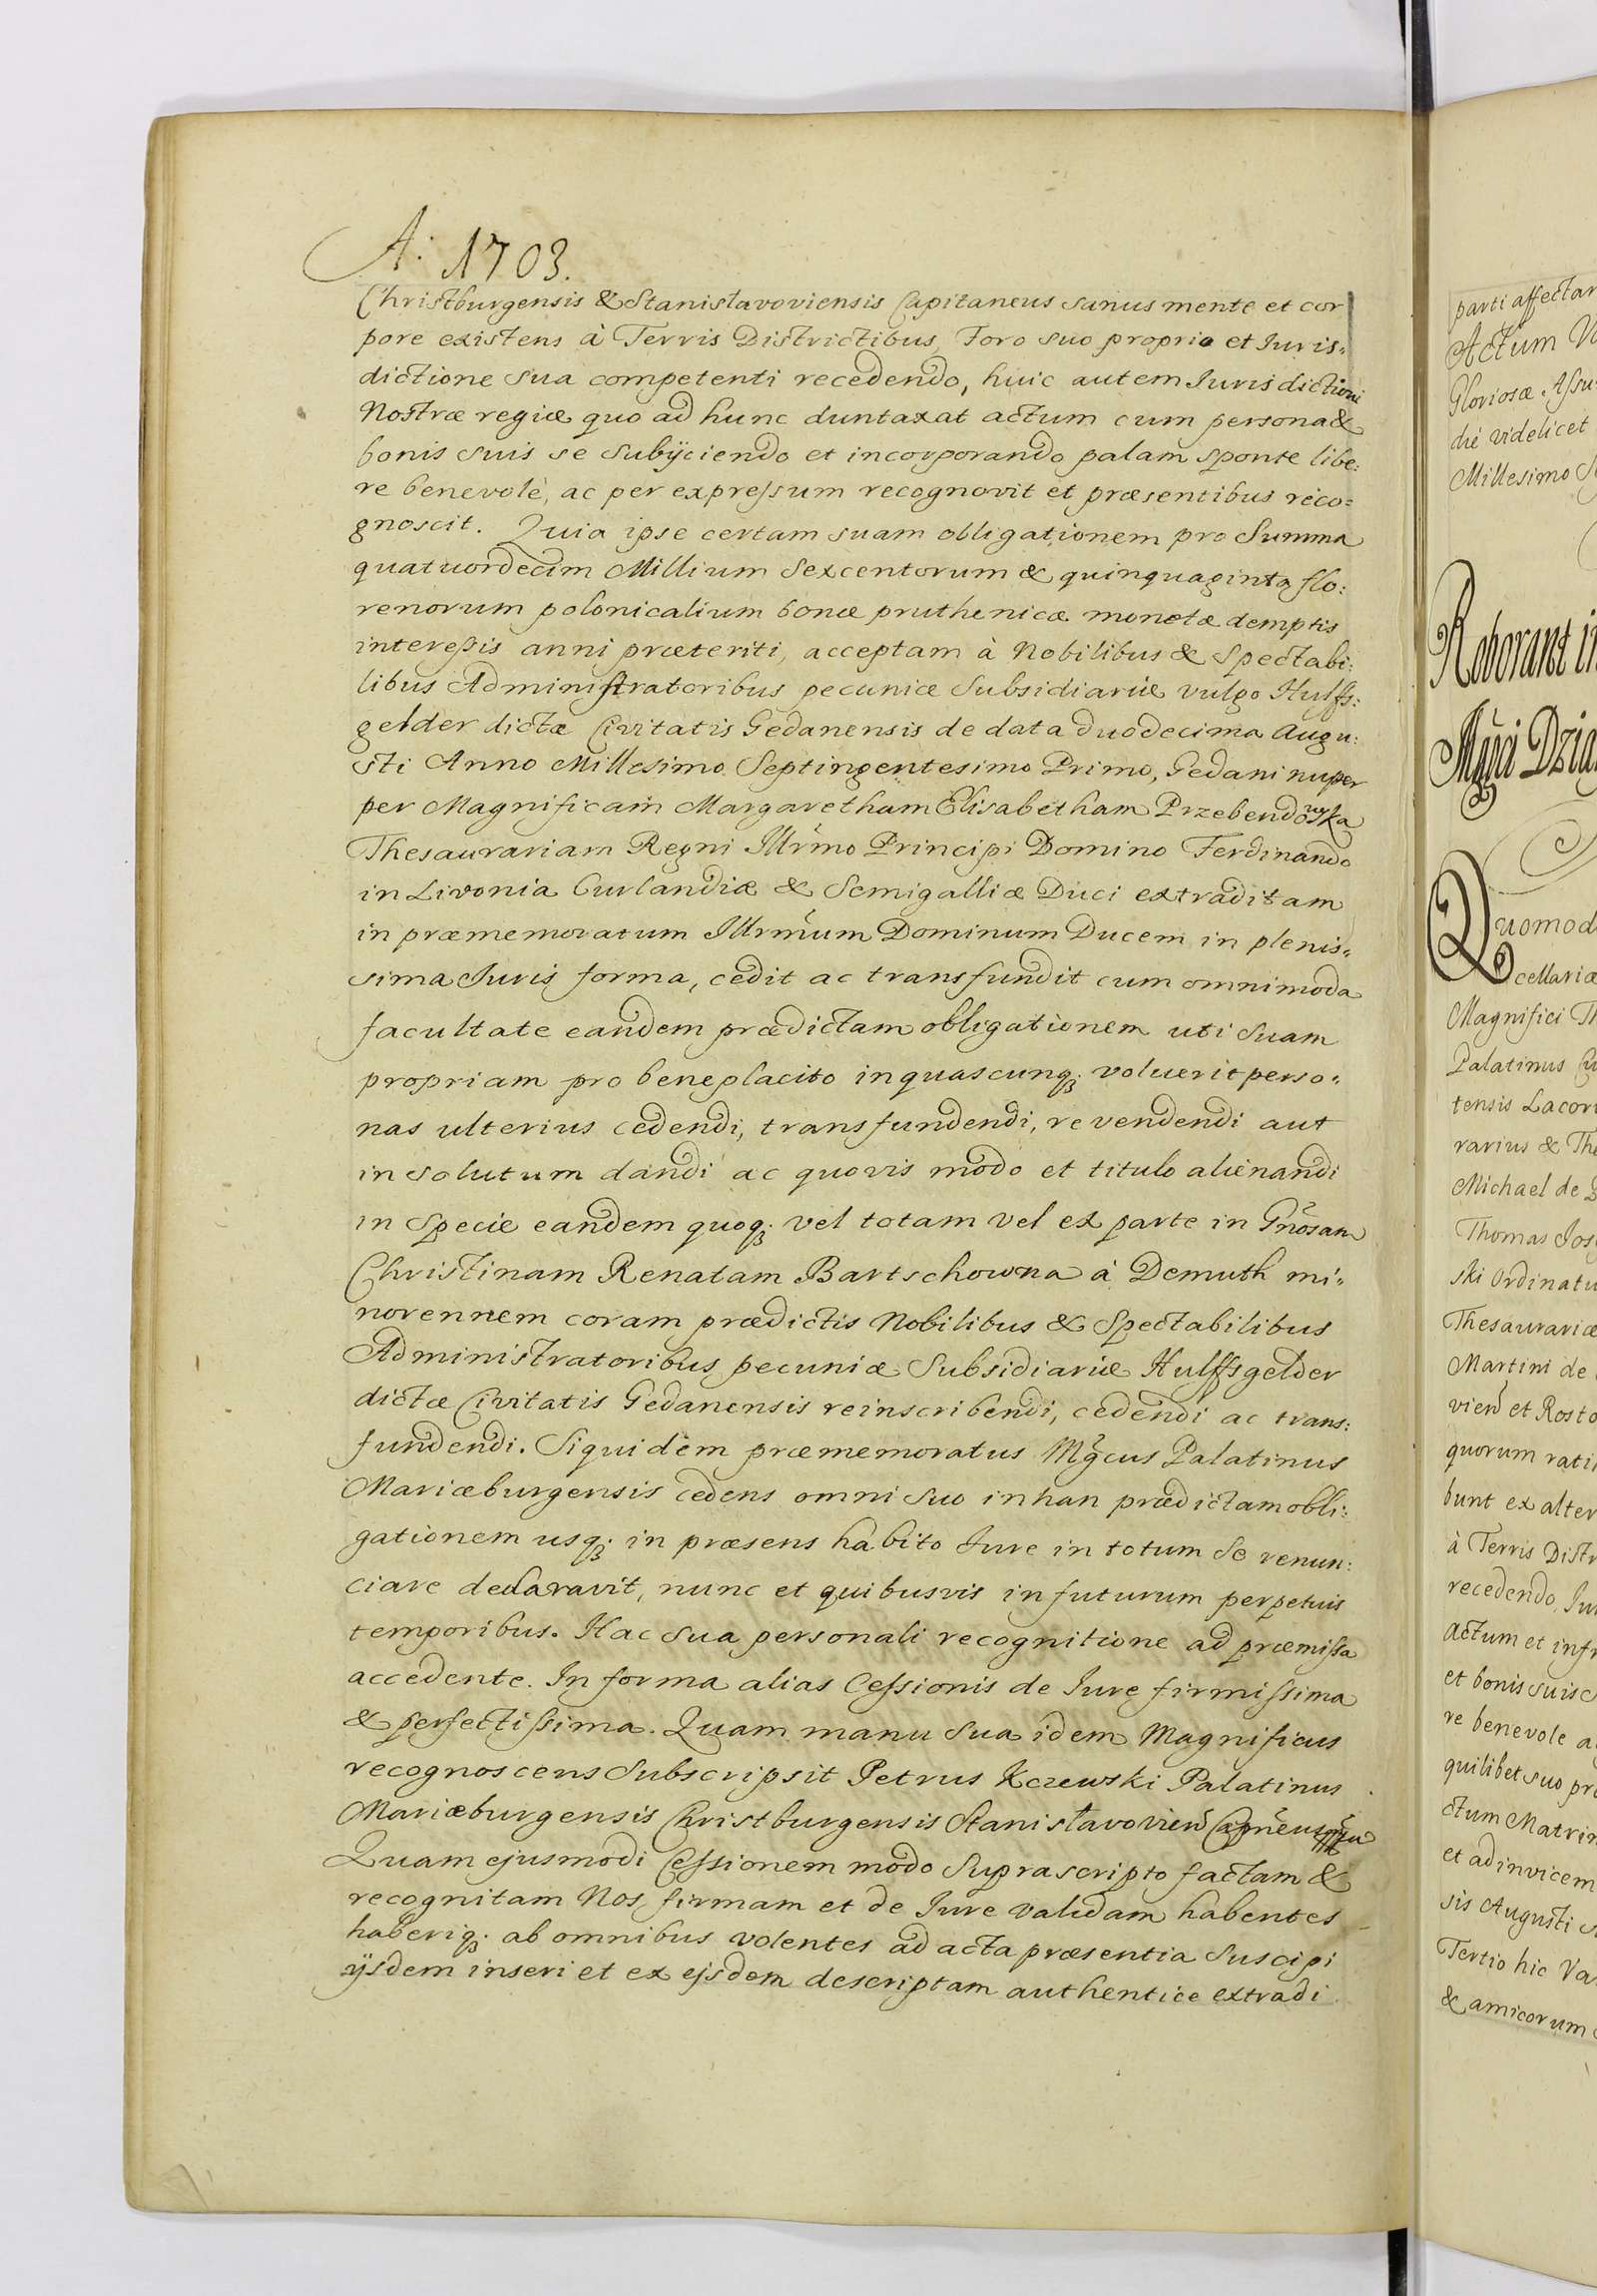 A: 1703.
Christburgensis & Stanislavoviensis Capitaneus sanus mente et cor
pore existens à Terris Districtibus, Foro suo proprio et Iuris=
dictione sua competenti recedendo, huic autem Iurisdictioni
Nostræ regiæ quo ad hunc duntaxat actum cum persona &
bonis suis se subijciendo et incorporando palam sponte libe:
re benevolè, ac per expressum recognovit et præsentibus reco=
gnoscit. Quia ipse certam suam obligationem pro Summa
quatuordecim Millium Sexcentorum & quinquaginta flo:
renorum polonicalium bonæ pruthenicæ monetæ demptis
interessis anni præteriti, acceptam à Nobilibus & Spectabi:
libus Administratoribus pecuniæ Subsidiariæ vulgo Hulffs:
gelder dictæ Civitatis Gedanensis de data duodecima Augu:
sti Anno Millesimo Septingentesimo Primo, Gedani nuper
per Magnificam Margaretham Elisabetham Przebendowska
Thesaurariam Regni Illrmo Principi Domino Ferdinando
in Livonia Curlandiæ & Semigalliæ Duci extraditam
in præmemoratum Illrmum Dominum Ducem in plenis=
sima Iuris forma, cedit ac transfundit cum omnimoda
facultate eandem prædictam obligationem uti suam
propriam pro beneplacito in quascunq; voluerit perso=
nas ulterius cedendi, transfundendi, revendendi aut
in solutum dandi ac quovis modo et titulo alienandi
in Specie eandem quoq; vel totam vel ex parte in Gnosam
Christinam Renatam Bartschowna à Demuth mi=
norennem coram prædictis Nobilibus & Spectabilibus
Administratoribus pecuniæ Subsidiariæ Hulffsgelder
dictæ Civitatis Gedanensis reinscribendi, cedendi ac trans:
fundendi. Siquidem præmemoratus Mgcus Palatinus
Mariæburgensis cedens omni suo in han prædictam obli:
gationem usq; in præsens habito Iure in totum se renun:
ciare declaravit, nunc et quibusvis in futurum perpetuis
temporibus. Hac sua personali recognitione ad præmissa
accedente. In forma alias Cessionis de Iure firmissima
& perfectissima. Quam manu sua idem Magnificus
recognoscens Subscripsit Petrus Kczewski Palatinus
Mariæburgensis Christburgensis Stanislavovien Capneus
Quam ejusmodi Cessionem modo Suprascripto factam &
recognitam Nos firmam et de Iure validam habentes
haberiq; ab omnibus volentes ad acta præsentia Suscipi
ijsdem inseri et ex ejsdem descriptam authentice extradi
parti affectar
Actum
Gloriosæ Assu
die videlicet
Millesimo
Roborant in
Mgci Dzia
Quomod
cellariæ
Magnifici Th
Palatinus
tensis Lacor
rarius & The
Michael de
Thomas Jos
ski Ordinatu
Thesaurariæ
Martini de
vien et Rosto
quorum rati
bunt ex alter
à Terris Distr
recedendo Iur
actum et infr
et bonis suis
re benevole a
quilibet suo pro
ctum Matrim
et ad invicem
sis Augusti
Tertio hic Va
& amicorum